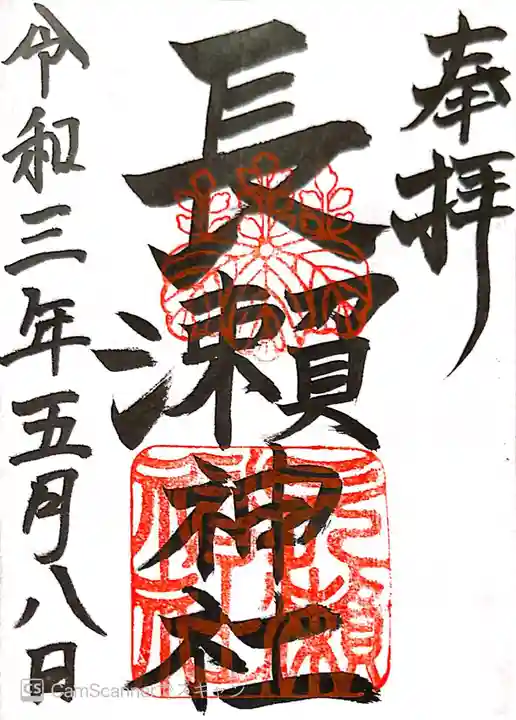 奉拝
長瀬神社
令和三年五月八日
CS CamScannerでスキャン